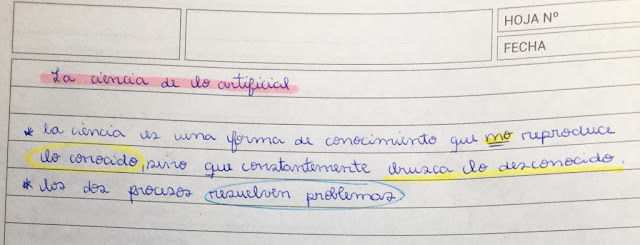 HOJA Nº
FECHA
La ciencia de lo artificial
* La ciencia es una forma de conocimiento que no reproduce
lo conocido, sino que constantemente busca lo desconocido.
* los dos procesos resuelven problemas